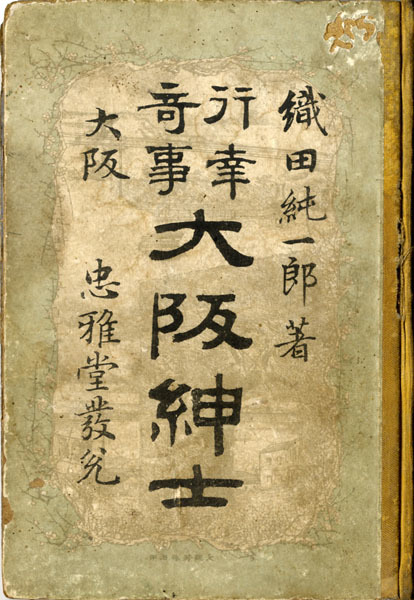 織田純一郎著
行幸
竒事
大阪紳士
大阪 忠雅堂發兌